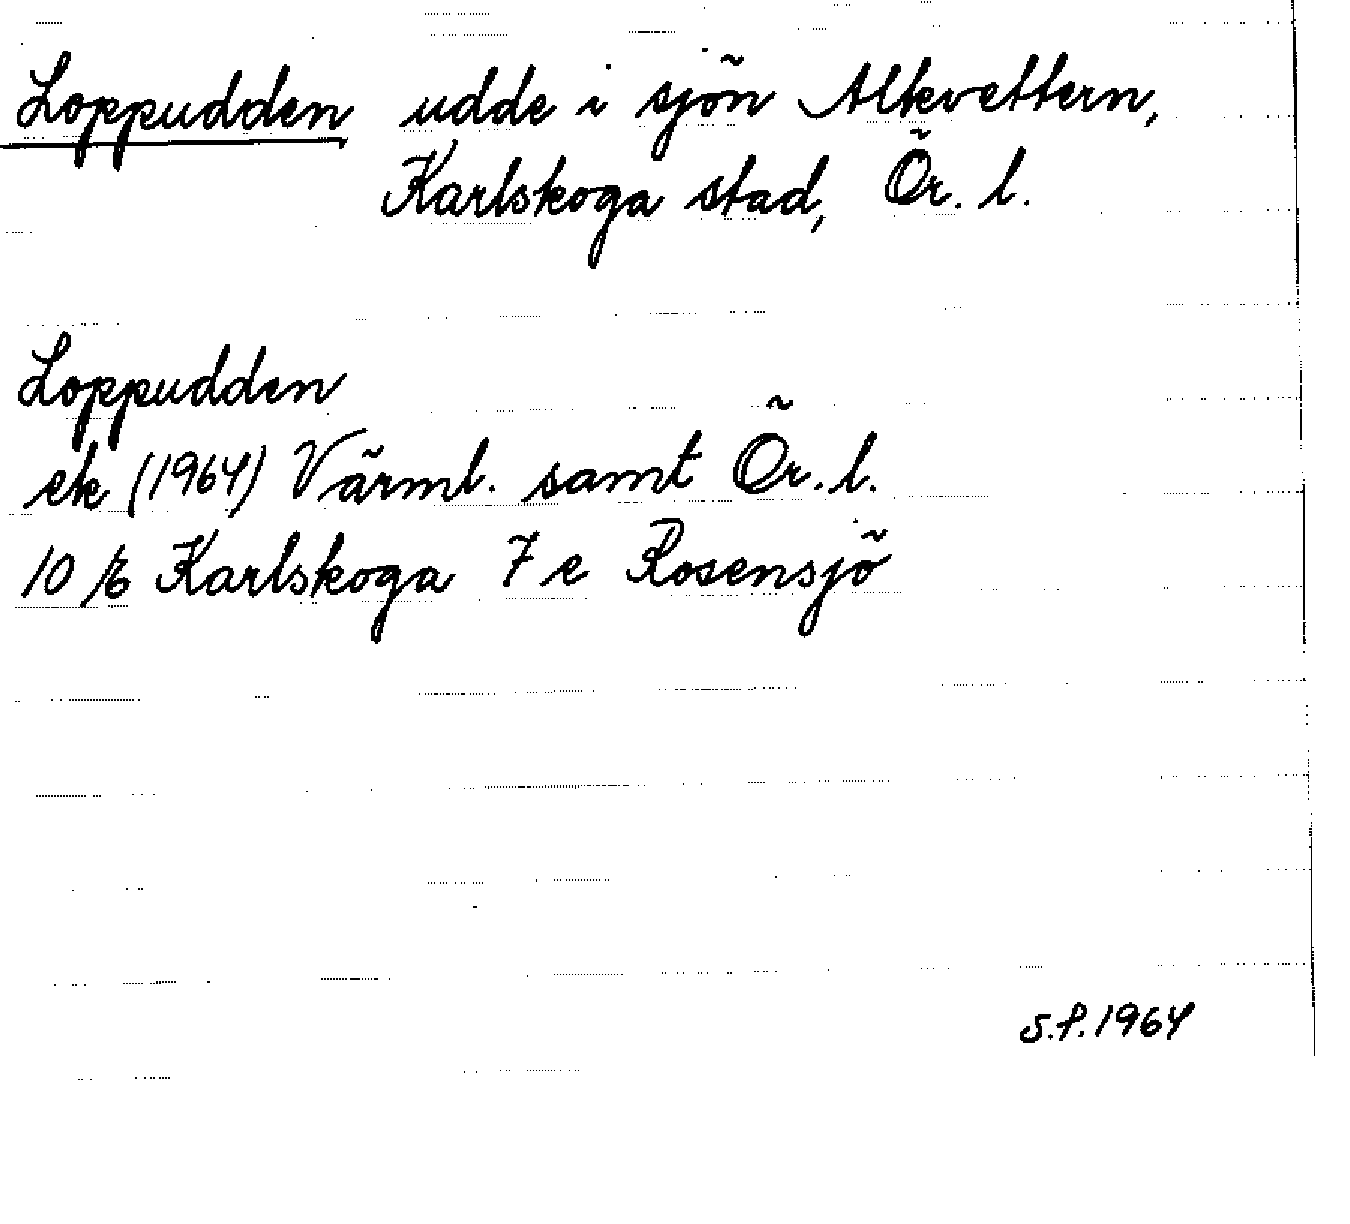 Loppudden udde i sjön Alkvettern,
Karlskoga stad, Ör. l.
Loppudden
ek (1964) Värml. samt Ör. l.
10 / 6 Karlskoga 7 e Rosensjö
S.f. 1964